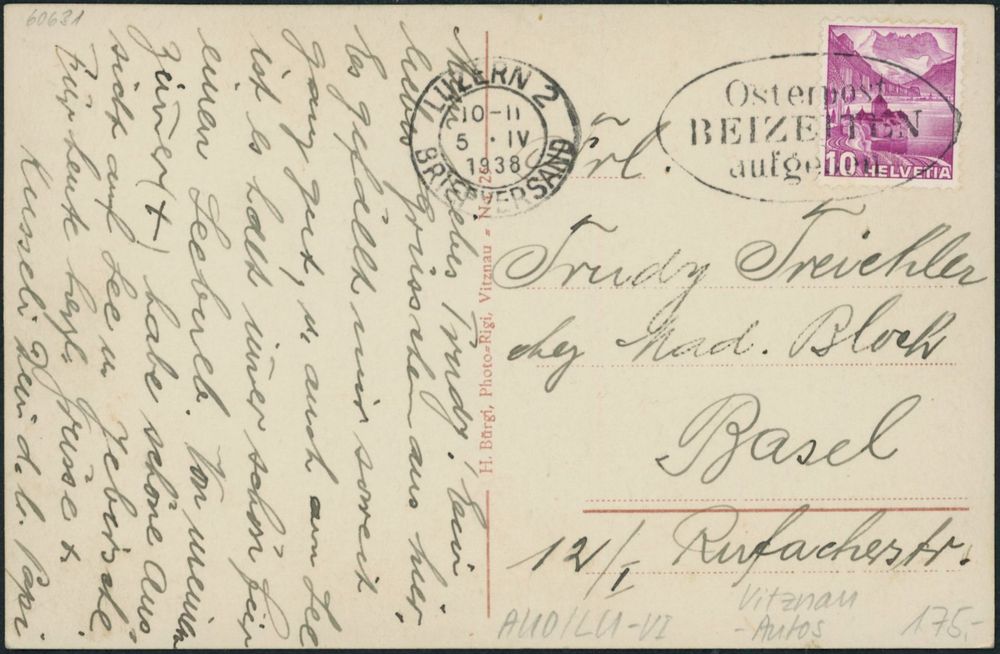 60631
Mein liebes Trudy! Ein
liebes Grüsschen aus hier.
Es gefällt mir soweit
ganz gut, u. auch am See
ist es halt immer schön für
einen Seebueb. Von meinem
Zimmer (+) habe schöne Aus
sicht auf See u. Gebirge
Für heute herzl. Grüsse +
Kusseli Dein d. l. Papi
H. Bürgi, Photo-Rigi, Vitznau - No. 26
LUZERN 2
10-11
5 . IV
1938
BRIEFVERSAND
Osterpost
BEIZEITEN
aufgeben
10 HELVETIA
Frl.
Trudy Treichler
chez Mad. Bloch
Basel
12/I Rufacherstr.
AUO/LU-VI
Vitznau
- Autos
175.-